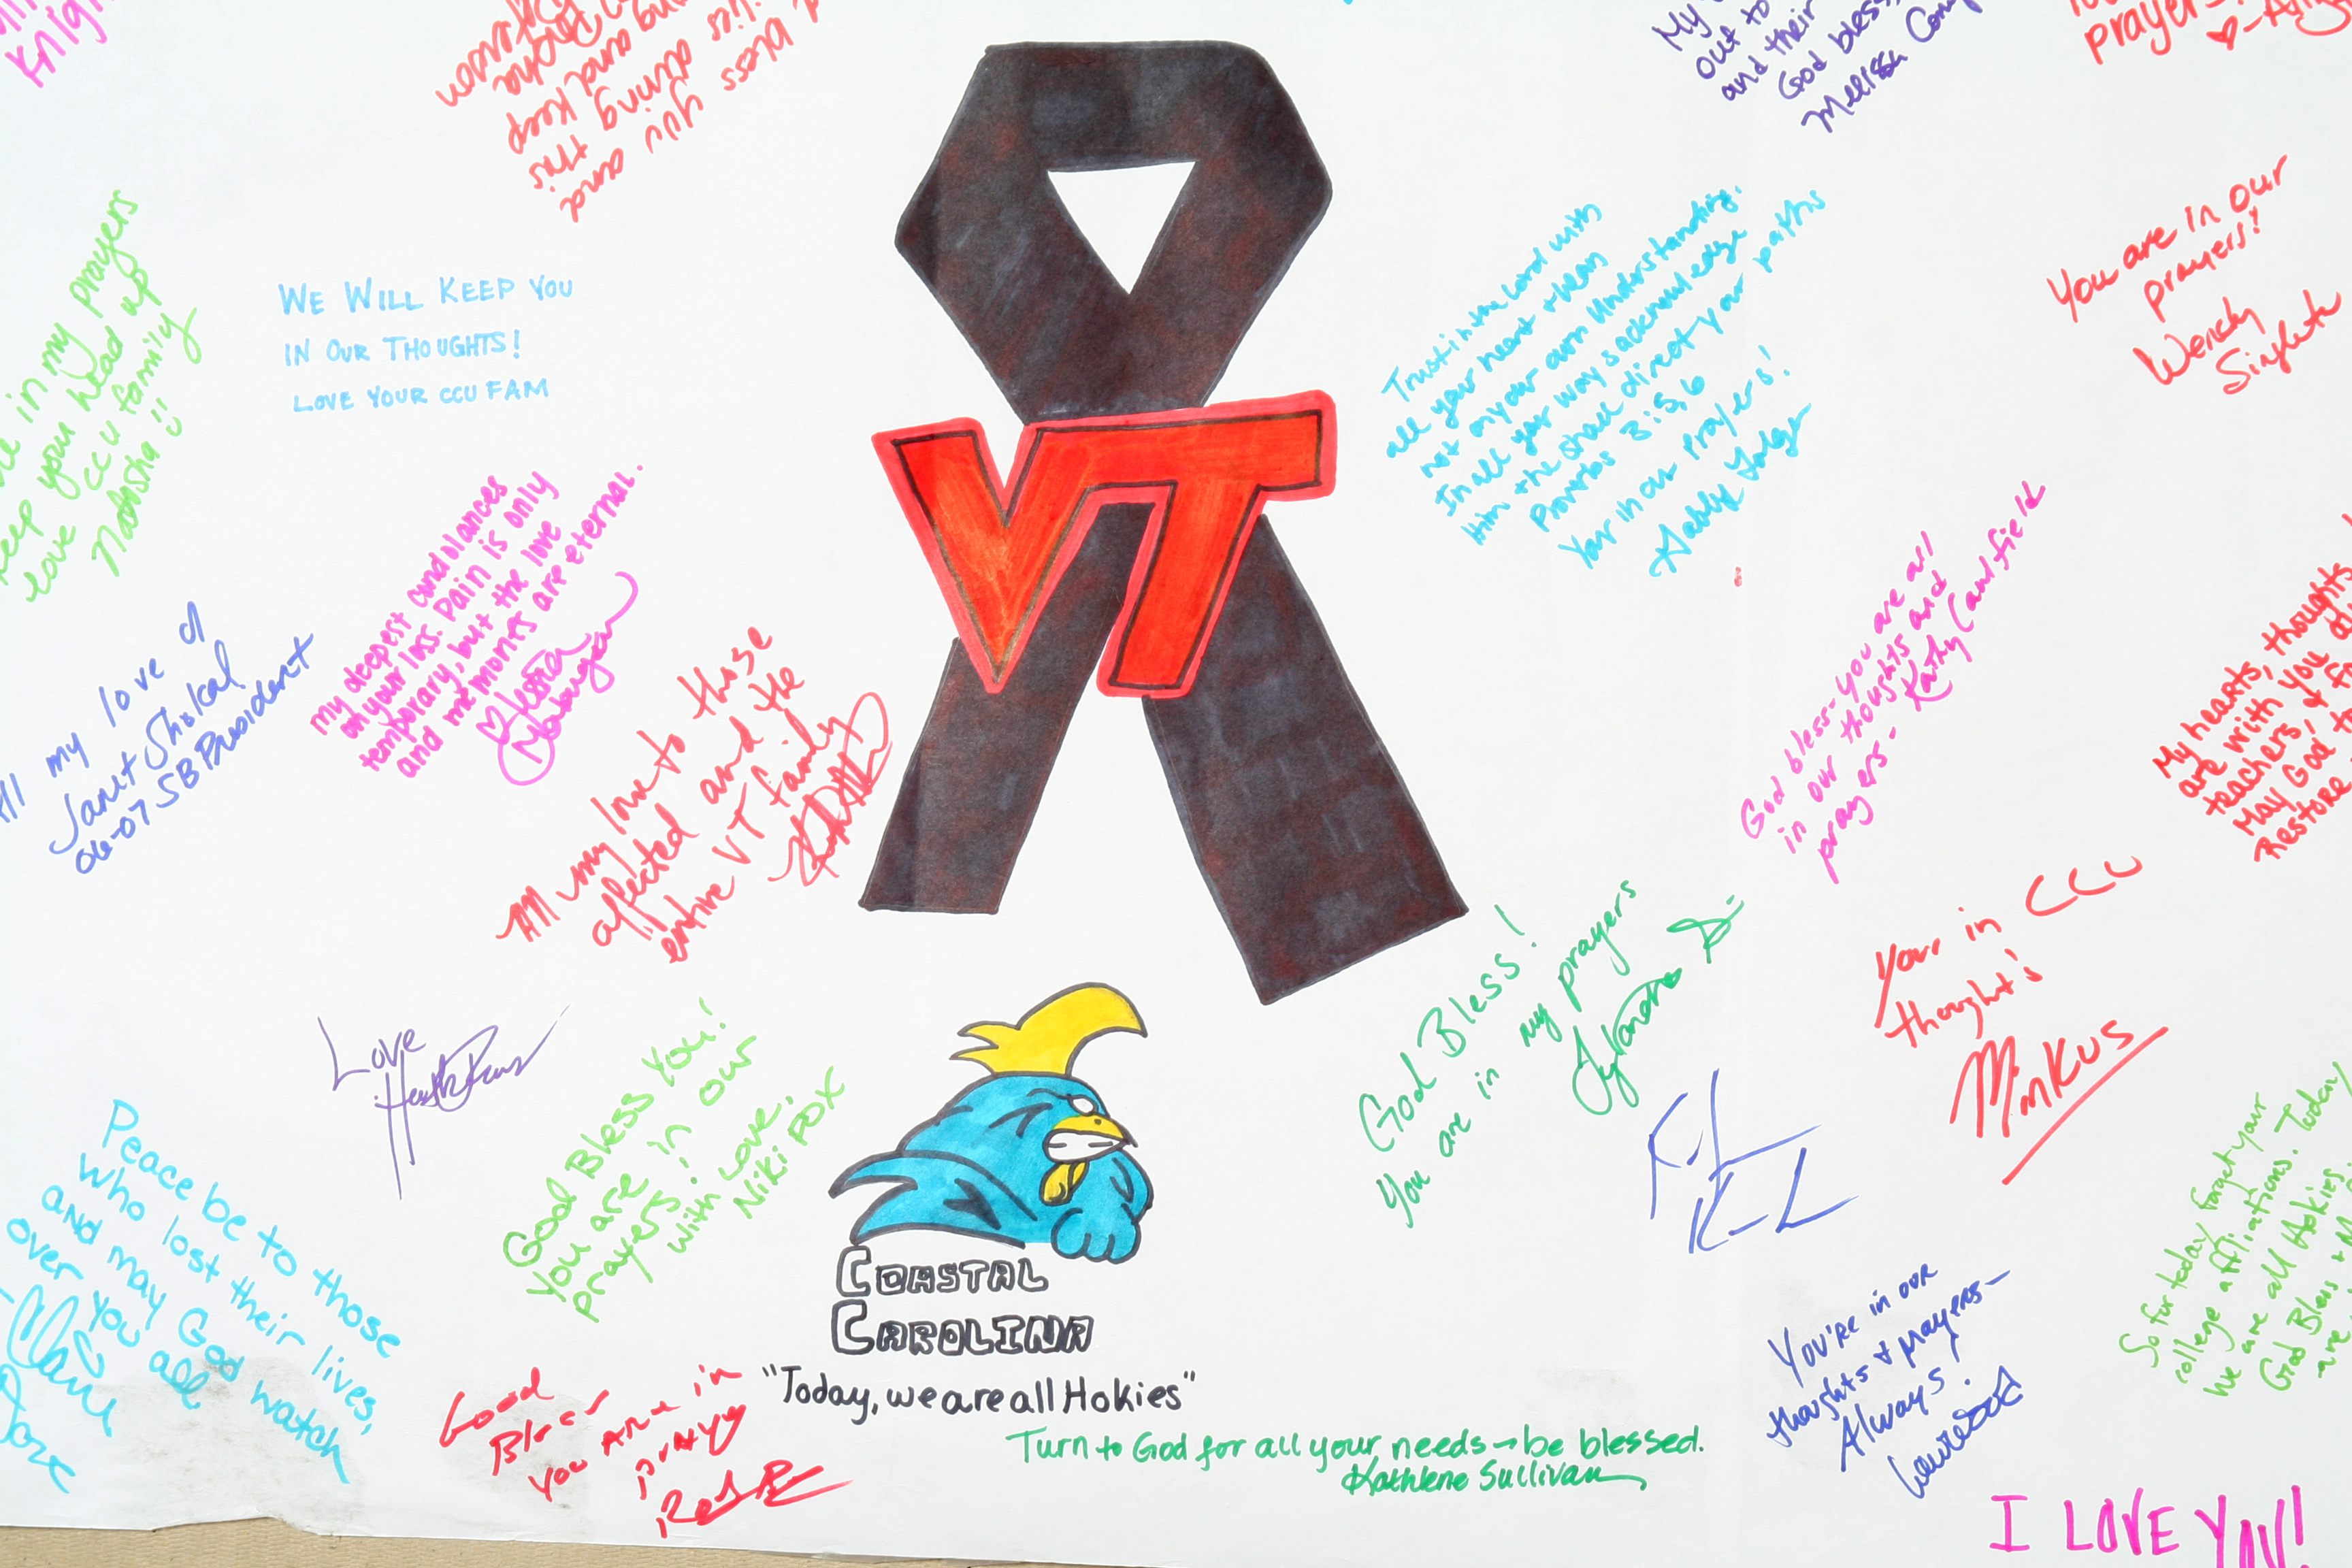 Knigh
bless you and
lies during this
ng and keep
My
out to
and their
God bless,
Melissa
prayer
in my prayers
keep your head up
love CCU family
Natasha
WE WILL KEEP YOU
IN OUR THOUGHTS!
LOVE YOUR CCU FAM
VT
Trust in the Lord with
all your heart + lean
not on your own Understanding.
In all your ways acknowledge
Him + he shall direct your paths
Proverbs 3:5,6
Your in our Prayers!
You are in our
prayers!!
Wendy
my deepest condolances
on your loss. Pain is only
temporary, but the love
and memories are eternal.
All my love
Janet
06-07 SB President
All my love to those
affected and the
entire VT family
God bless- you are all
in our thoughts and
prayers- Kathy Caulfield
My hearts, thoughts
are with you
teachers, &
May God
Restore
Your in CCU
thought's
Minkus
Love
God Bless You!
You are in our
prayers!
With Love,
Niki Fox
God Bless!
You are in my prayers
Peace be to those
who lost their lives,
and may God watch
over you all
COASTAL
CAROLINA
"Today, we are all Hokies"
Turn to God for all your needs → be blessed.
Kathlene Sullivan
God
Bless
You are in
pray
You're in our
thoughts + prayers-
Always!
So for today forget your
college affiliations. Today
we are all Hokies.
God Bless +
are
I LOVE YOU!